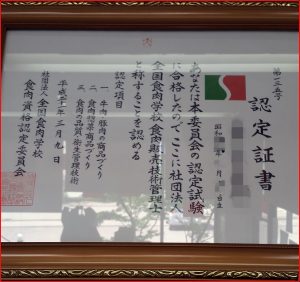 第一三五号
認定証書
昭和 年 月 日生
あなたは本委員会の認定試験
に合格したのでここに社団法人
全国食肉学校食肉販売技術管理士
と称することを認める
認定項目
一 牛肉 豚肉の商品づくり
二 食肉惣菜商品づくり
三 食肉の品質 衛生管理技術
平成二十一年三月九日
社団法人全国食肉学校
食肉資格認定委員会